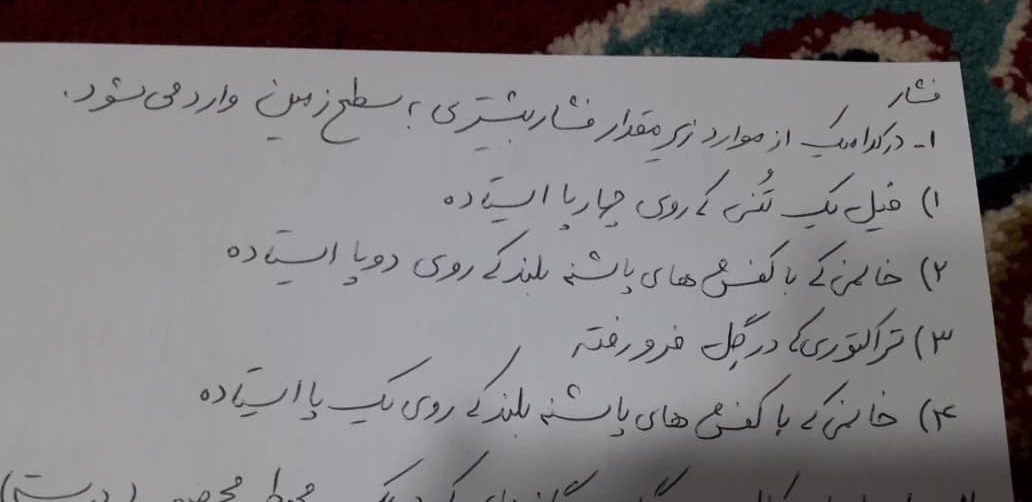 فشار
۱- در کدامیک از موارد زیر مقدار فشار بیشتری به سطح زمین وارد می شود.
۱) فیل یک تُنی که روی چهار پا ایستاده
۲) خانمی که با کفش های پاشنه بلند که روی دو پا ایستاده
۳) تراکتوری که در گِل فرو رفته
۴) خانمی که با کفش های پاشنه بلند که روی یک پا ایستاده